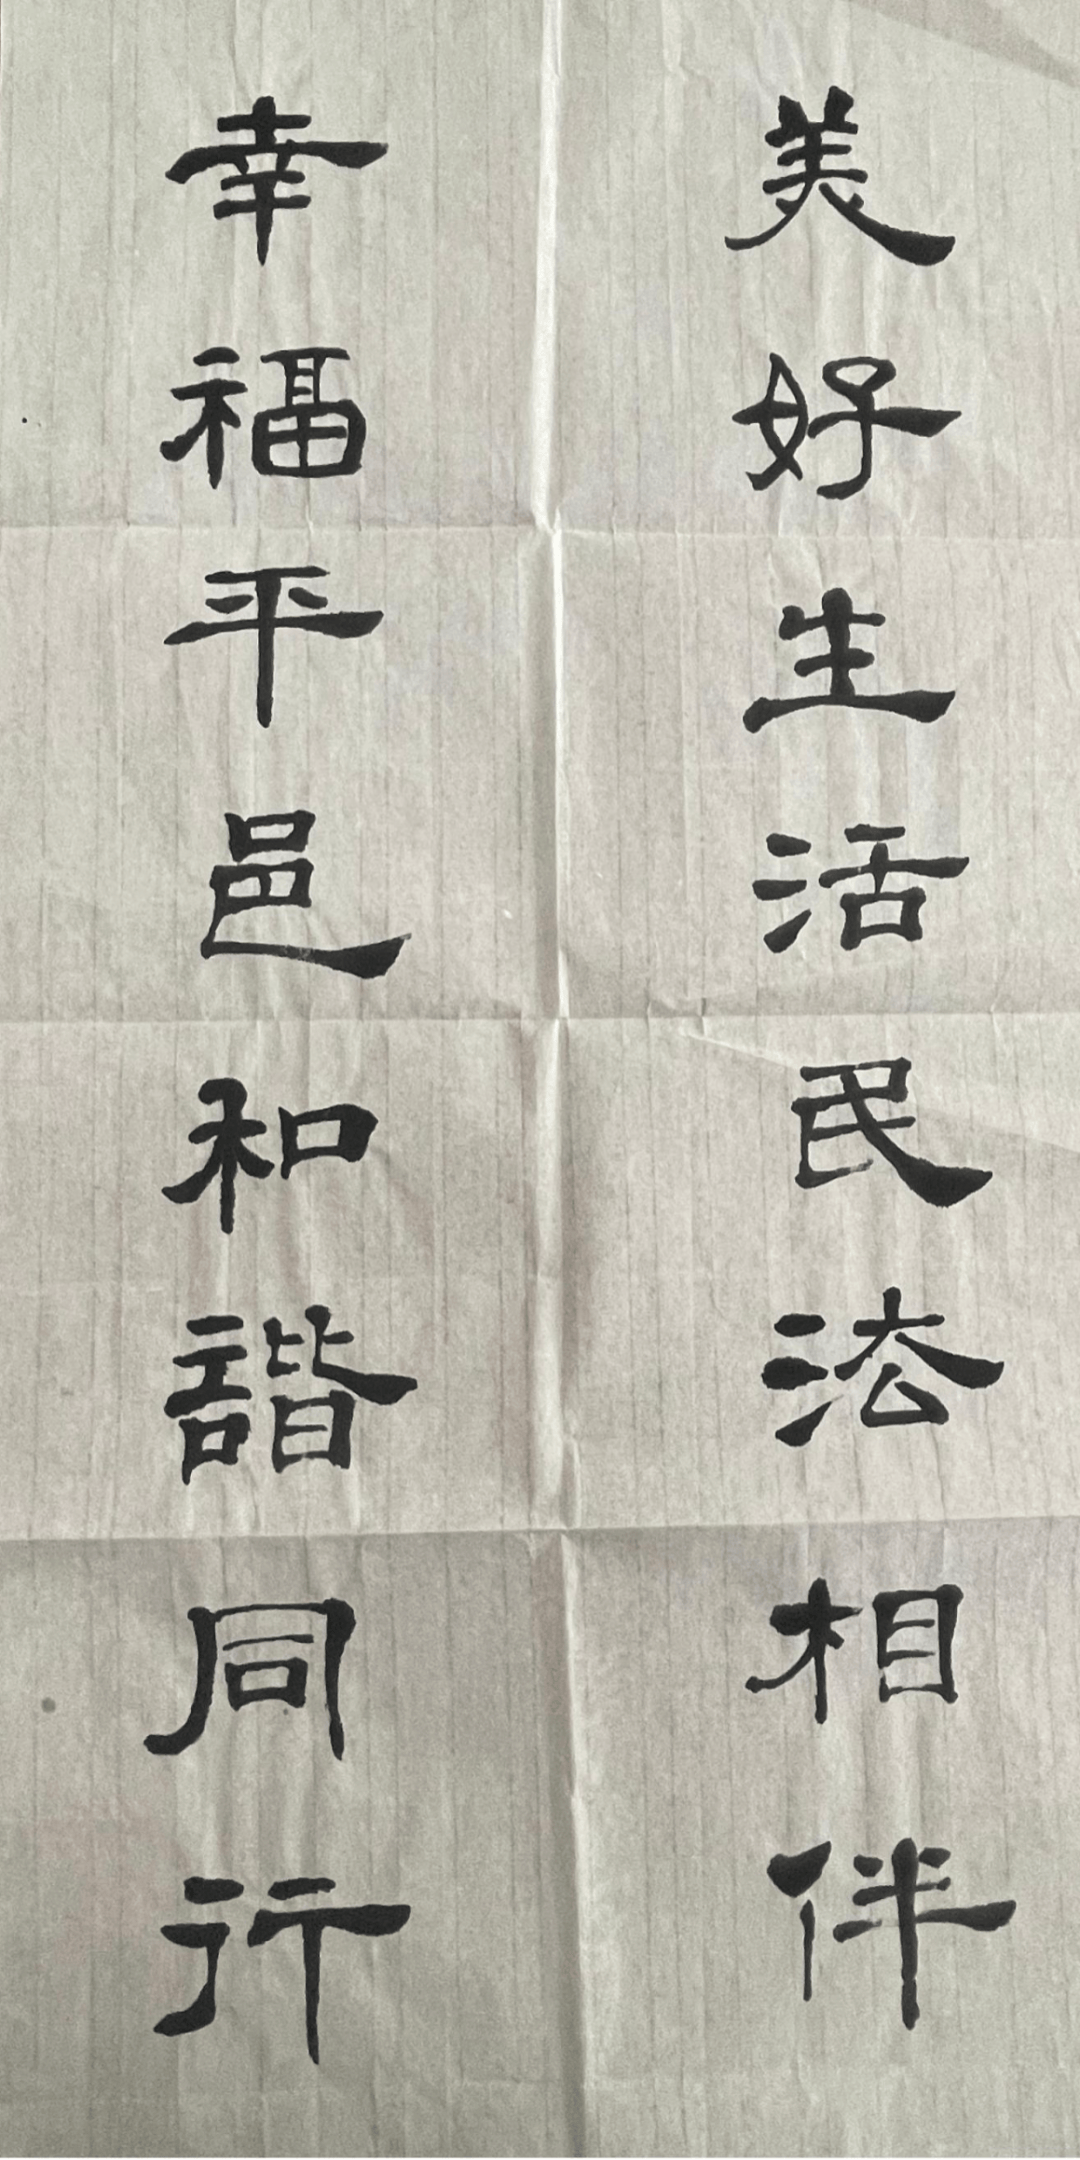 美好生活民法相伴
幸福平邑和諧同行